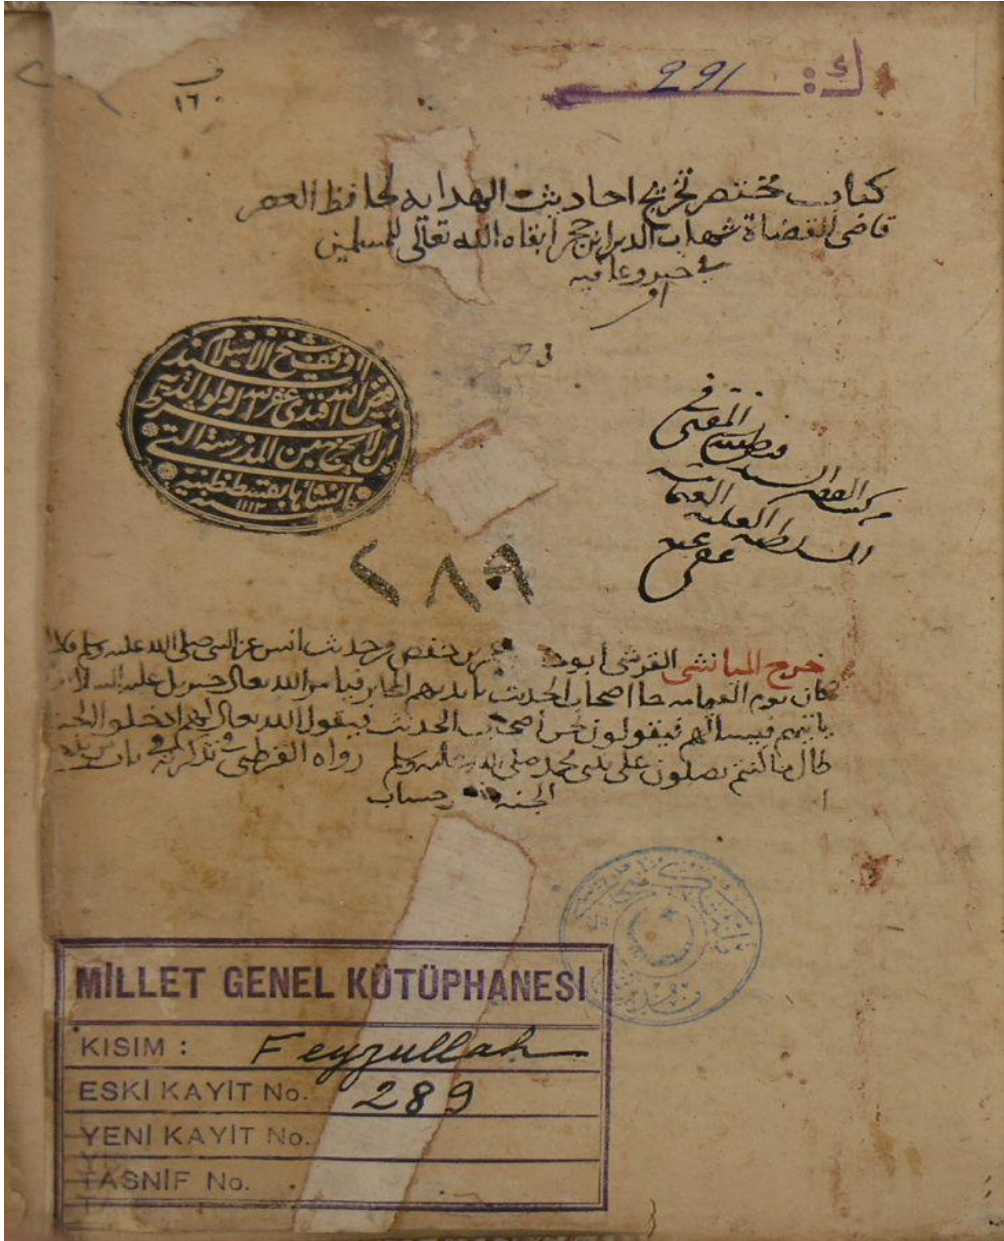 ك: 291
ف
١٦٠
كتاب مختصر تخريج احاديث الهدايه لحافظ العصر
قاضي القضاة شهاب الدين ابن حجر ابقاه الله تعالى للمسلمين
في خير وعافيه
وقف شيخ الاسلام السيد
فيض الله افندى غفر الله له ولوالديه
بشرط ان لا يخرج من المدرسة التي
انشأها بقسطنطينية
سنه ١١١٢
المفتي في
السلطنه العليه العثمانيه
عفى عنه
٢٨٩
خرج الميانشي القرشي أبو حفص من حديث انس عن النبي صلى الله عليه وسلم قال
كان يوم القيامه جا اصحاب الحديث بايديهم المحابر فيامر الله تعال جبريل عليه السلام ان
ياتيهم فيسالهم فيقولون نحن أصحاب الحديث فيقول الله تعال لهم ادخلوا الجنه
طال ما كنتم تصلون على نبيي محمد صلى الله عليه وسلم رواه القرطبي في تذكرته في باب
الجنه حساب
MİLLET GENEL KÜTÜPHANESİ
KISIM : Feyzullah
ESKİ KAYIT No. 289
YENİ KAYIT No.
TASNİF No.